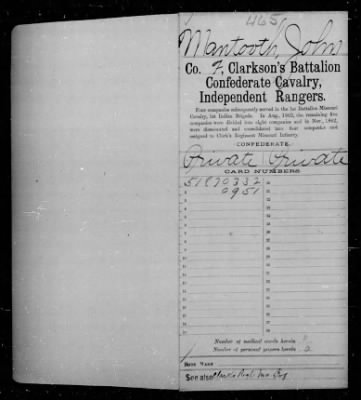 465
Mantooth, John
Co. F, Clarkson's Battalion
Confederate Cavalry,
Independent Rangers.
Four companies subsequently served in the 1st Battalion Missouri
Cavalry, 1st Indian Brigade. In Aug., 1862, the remaining five
companies were divided into eight companies and in Nov., 1862,
were dismounted and consolidated into four companies and
assigned to Clark's Regiment Missouri Infantry.
(CONFEDERATE.)
Private Private
CARD NUMBERS
51870332
0951
Number of medical cards herein 0
Number of personal papers herein 0
BOOK MARK
See also Clark's Regt. Mo. Inf.